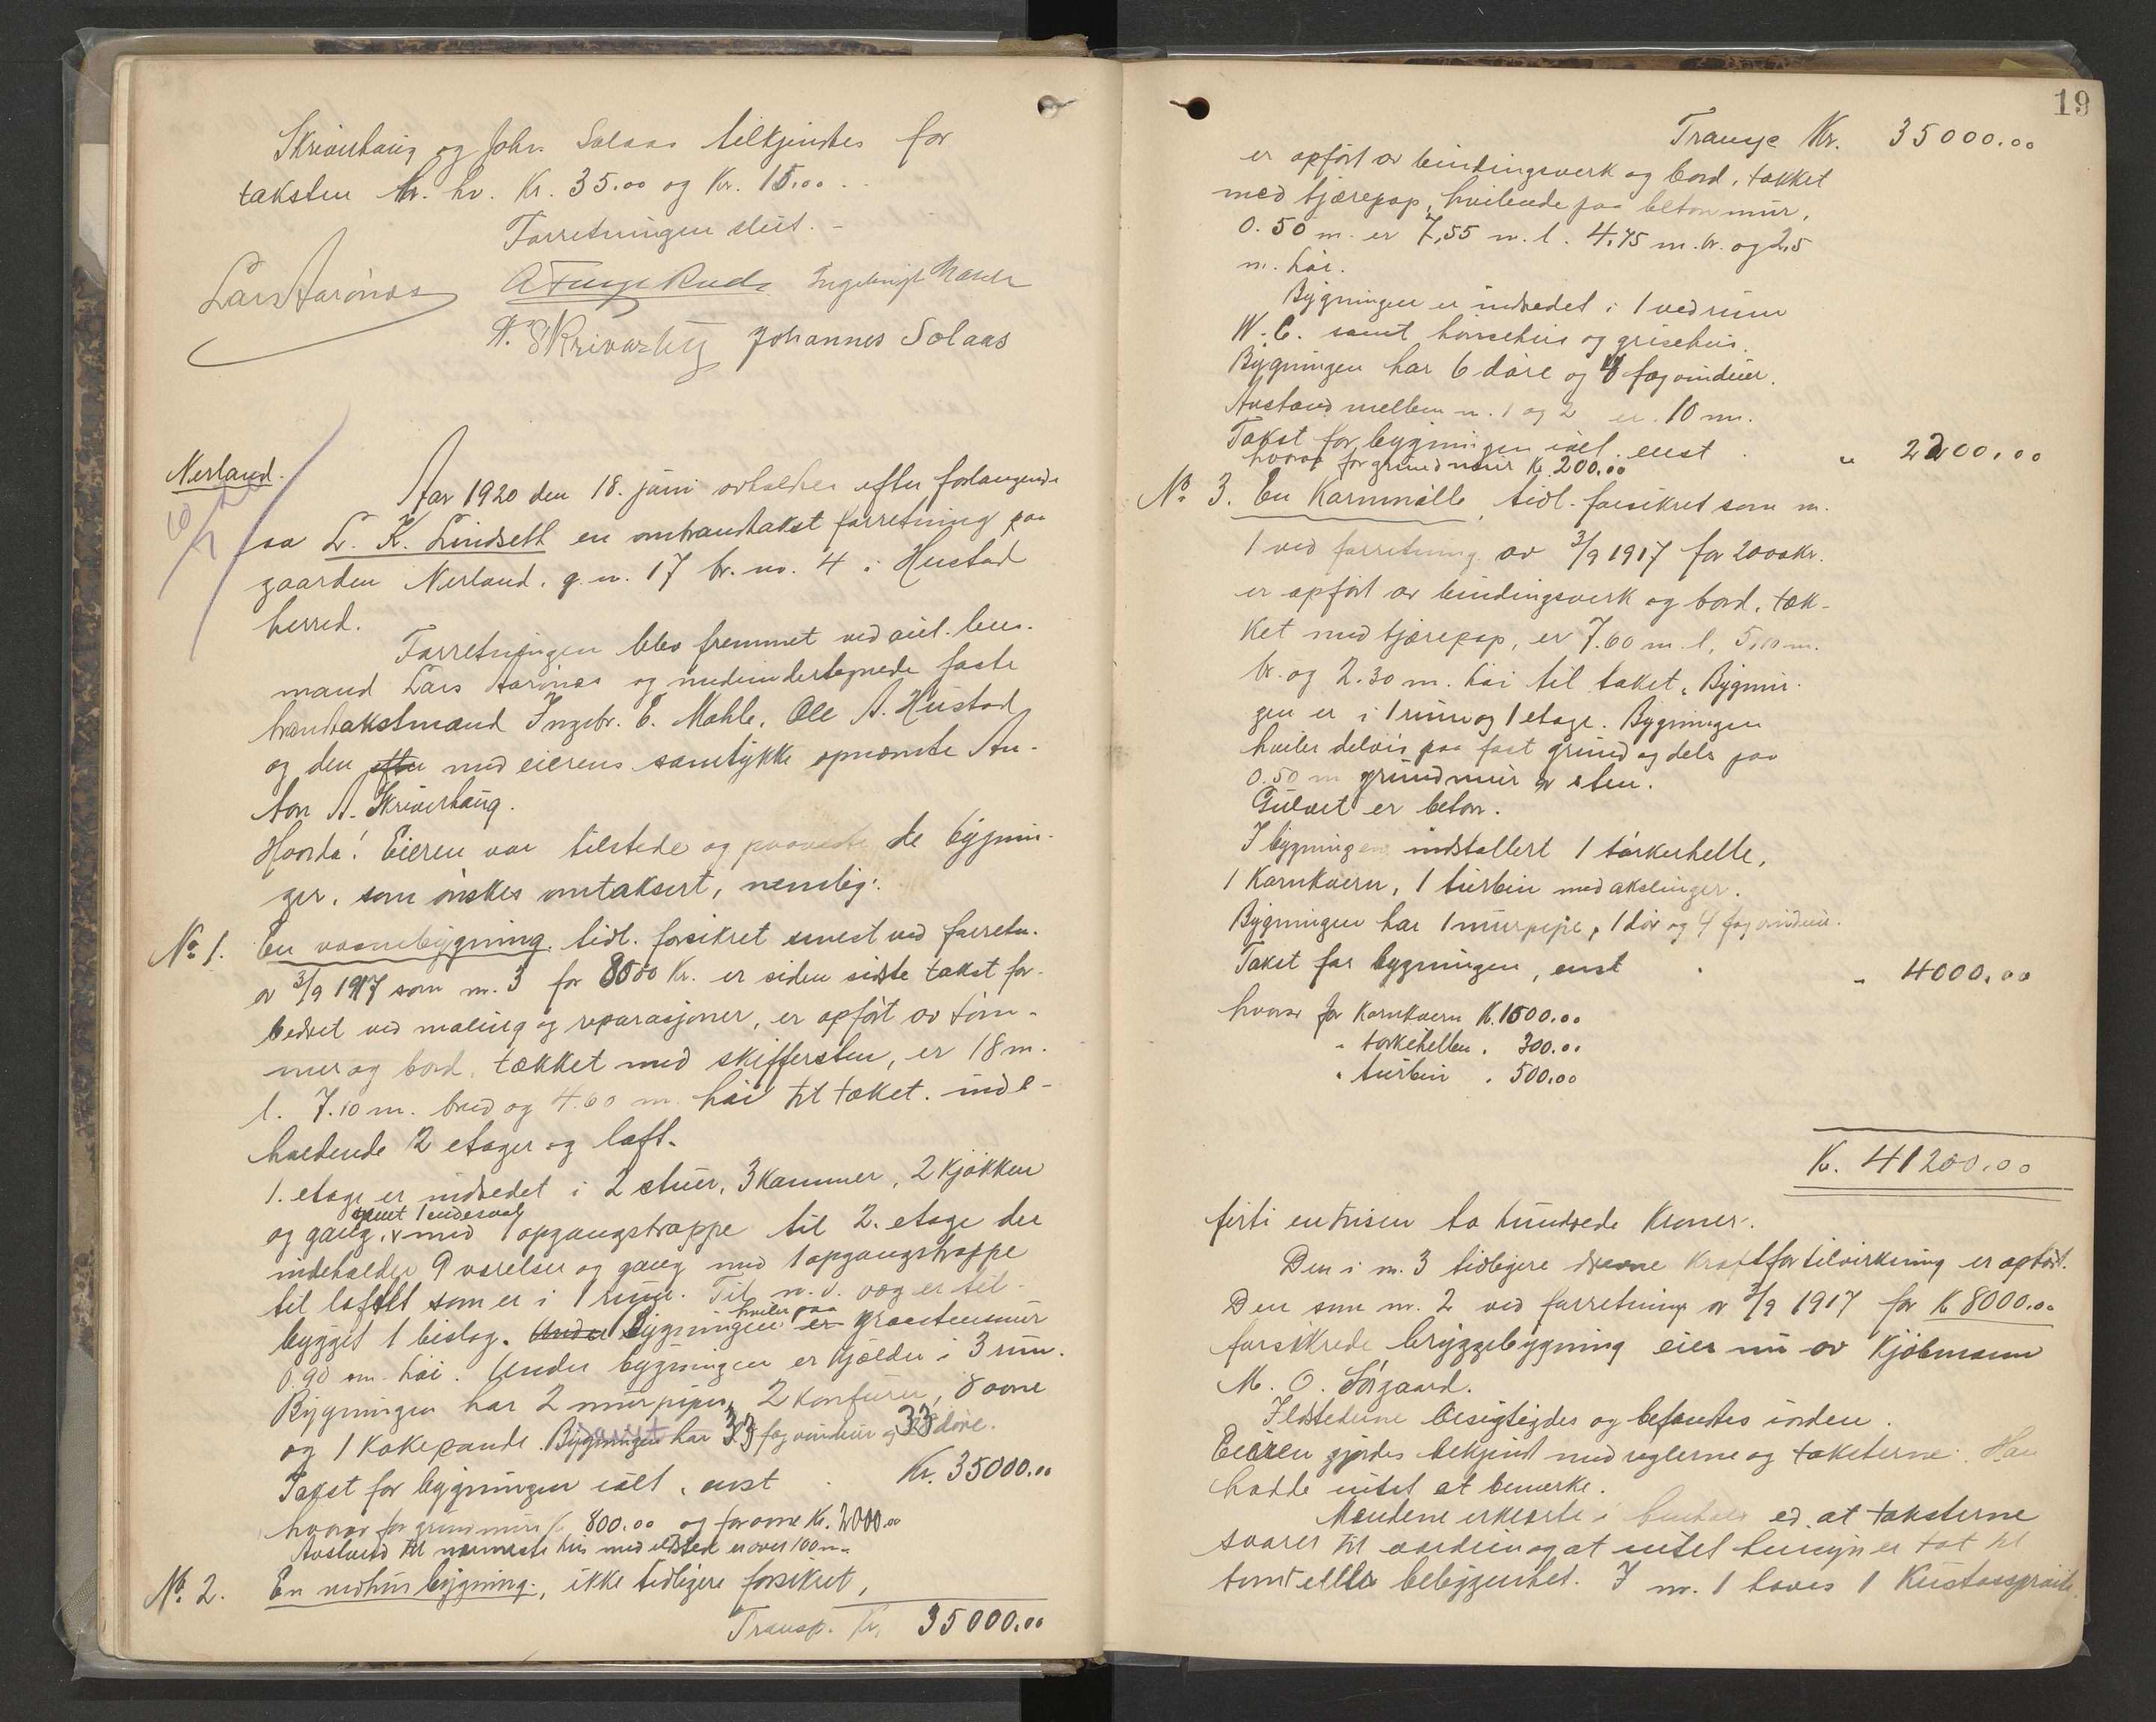 Skriverhaug og Johs. Solaas tilkjendtes for
taksten hr. hv. Kr. 35.00 og Kr. 15.00.
Forretningen slut. -
Lars Aarönæs
Johannes Solaas
Nerland.
Aar 1920 den 18. juni avholdtes efter forlangende
av L. K. Lindseth en ombrandtakst forretning paa
gaarden Nerland, g.n. 17 br.no. 4 i Hustad
herred.
Forretningen blev fremmet ved aut. lens-
mand Lars Aarönæs og medundertegnede faste
brandtakstmænd Ingebr. E. Mahle, Ole A. Hustad
og den efter med eierens samtykke opnævnte An-
ton A. Skriverhaug.
Hvorda! Eieren var tilstede og paaviste de bygnin-
ger, som ønskes omtaksert, nemlig:
No 1. En vaanebygning tidl. forsikret senest ved forretn.
av 3/9 1917 som nr. 3 for 8500 Kr. er siden sidste takst for-
bedret ved maling og reparasjoner, er opført av tøm-
mer og bord, tækket med skiffersten, er 18 m.
l. 7.10 m. bred og 4.60 m. høi til taket. inde-
holdende 2 etager og loft.
1. etage er indredet i 2 stuer, 3 kammer, 2 kjøkken
samt 1
og gang, v med 1 opgangstrappe til 2. etage der
indeholder 9 værelser og gang med 1 opgangstrappe
til loftet som er i 1 rum. Til n.v. væg er til-
hviler paa
bygget 1 bislag. Under Bygningen er graastensmur
0.90 m. høi. Under bygningen er kjælder i 3 rum.
Bygningen har 2 murpiper, 2 komfurer, 8 ovne
og 1 kokepande. Bygningen har 33 fag vinduer og 33 døre.
Takst for bygningen ialt, enst . Kr. 35000.00
hvorav for grundmur Kr. 800.00 og for ovne Kr. 2000.00
Avstand til nærmeste hus med ildsted er over 100 m.
No. 2. En vedhusbygning, ikke tidligere forsikret,
Transp. Kr. 35000.00
19
Transp Kr. 35000.00
er opført av bindingsverk og bord, tækket
med tjærepap, hvilende paa betonmur,
0.50 m. er 7,55 m. l. 4,75 m. br. og 2,5
m. høi.
Bygningen er indredet i 1 vedrum
W.C. samt hønsehus og grisehus.
Bygningen har 6 døre og 4 fag vinduer.
Avstand mellem nr. 1 og 2 er 10 m.
Takst for bygningen ialt enst . " 2200.00
hvorav for grundmur Kr. 200.00
No 3. En Kornmølle, tidl. forsikret som nr.
1 ved forretning av 3/9 1917 for 2000 kr.
er opført av bindingsverk og bord, tæk-
ket med tjærepap, er 7.60 m. l, 5,10 m.
br. og 2.30 m. høi til taket. Bygnin-
gen er i 1 rum og 1 etage. Bygningen
hviler delvis paa fast grund og dels paa
0.50 m grundmur av sten.
Gulvet er beton.
I bygningen indstallert 1 tørkerhelle,
1 Kornkvern, 1 turbin med akslinger.
Bygningen har 1 murpipe, 1 dør og 4 fag vinduer.
Takst for bygningen, enst . " 4000.00
hvorav for Kornkvern K. 1500.00
" tørkehellen . 300.00
" turbin . 500.00
K. 41200.00
førti en tusen to hundrede Kroner.
Den i nr. 3 tidligere drevne Kraftfortilvirkning er ophørt.
Den som nr. 2 ved forretning av 3/9 1917 for K 8000.00
forsikrede bryggebygning eies nu av Kjøbmann
M. O. Sørgaard.
Ildstederne besigtigdes og befandtes iorden.
Eieren gjordes bekjendt med reglerne og taksterne. Han
hadde intet at bemerke.
Mændene erklærte i henhold ed, at taksterne
svarer til værdien og at intet hensyn er tat til
tomt eller beliggenhet. I nr. 1 haves 1